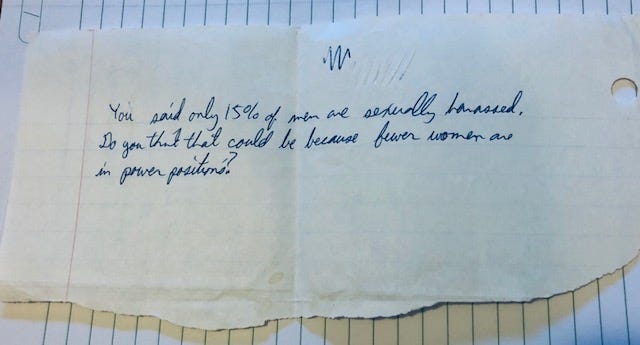 You said only 15% of men are sexually harassed.
Do you that that could be because fewer women are
in power positions?